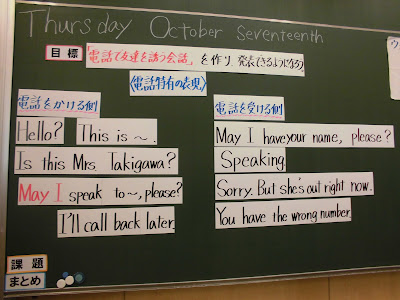 Thursday October Seventeenth
目標 「電話で友達を誘う会話」を作り、発表できるようになろう
〈電話特有の表現〉
電話をかける側
Hello? This is ~.
Is this Mrs. Takigawa?
May I speak to ~, please?
I'll call back later.
電話を受ける側
May I have your name, please?
Speaking.
Sorry. But she's out right now.
You have the wrong number.
課題
まとめ